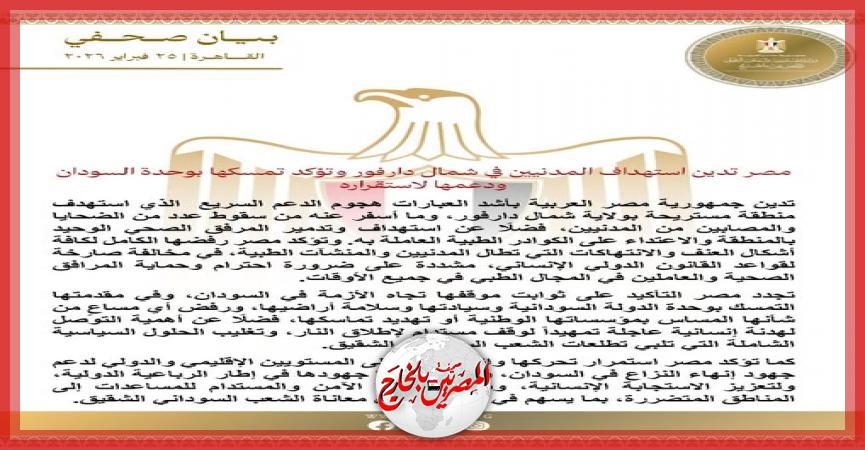 بيان صحفي
القاهرة | ٢٥ فبراير ٢٠٢٦
مصر تدين استهداف المدنيين في شمال دارفور وتؤكد تمسكها بوحدة السودان
ودعمها لاستقراره
تدين جمهورية مصر العربية بأشد العبارات هجوم الدعم السريع الذي استهدف
منطقة مستريحة بولاية شمال دارفور، وما أسفر عنه من سقوط عدد من الضحايا
والمصابين من المدنيين، فضلًا عن استهداف وتدمير المرفق الصحي الوحيد
بالمنطقة والاعتداء على الكوادر الطبية العاملة به. وتؤكد مصر رفضها الكامل لكافة
أشكال العنف والانتهاكات التي تطال المدنيين والمنشآت الطبية، في مخالفة صارخة
لقواعد القانون الدولي الإنساني، مشددة على ضرورة احترام وحماية المرافق
الصحية والعاملين في المجال الطبي في جميع الأوقات.
تجدد مصر التأكيد على ثوابت موقفها تجاه الأزمة في السودان، وفي مقدمتها
التمسك بوحدة الدولة السودانية وسيادتها وسلامة أراضيها، ورفض أي مساع من
شأنها المساس بمؤسساتها الوطنية أو تهديد تماسكها، فضلًا عن أهمية التوصل
لهدنة إنسانية عاجلة تمهيداً لوقف لإطلاق النار، وتغليب الحلول السياسية
الشاملة التي تلبي تطلعات الشعب الشقيق.
كما تؤكد مصر استمرار تحركها المستويين الإقليمي والدولي لدعم
جهود إنهاء النزاع في السودان، جهودها في إطار الرباعية الدولية،
ولتعزيز الاستجابة الإنسانية، الآمن والمستدام للمساعدات إلى
المناطق المتضررة، بما يسهم في معاناة الشعب السوداني الشقيق.
المصريين بالخارج